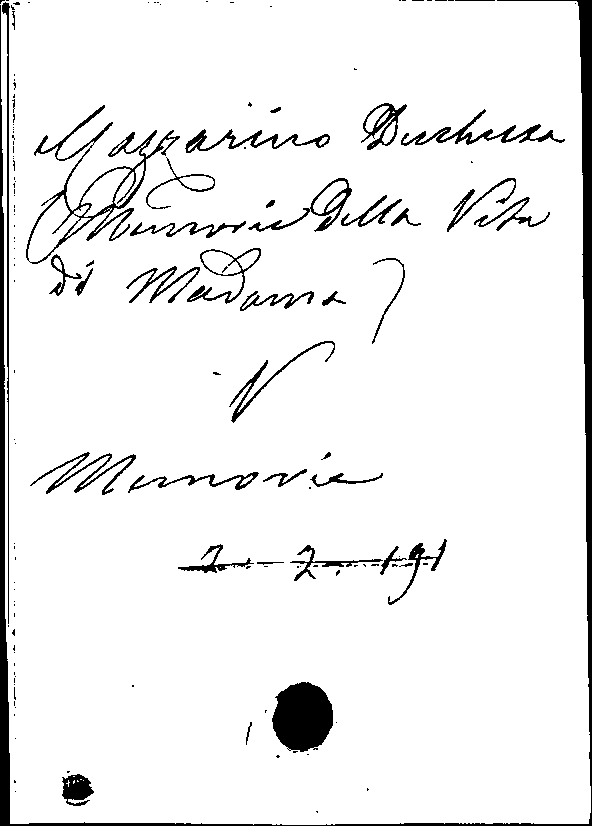 Mazzarino Duchessa
(Memorie Della Vita
di Madama)
V
Memorie
2. 2. 191